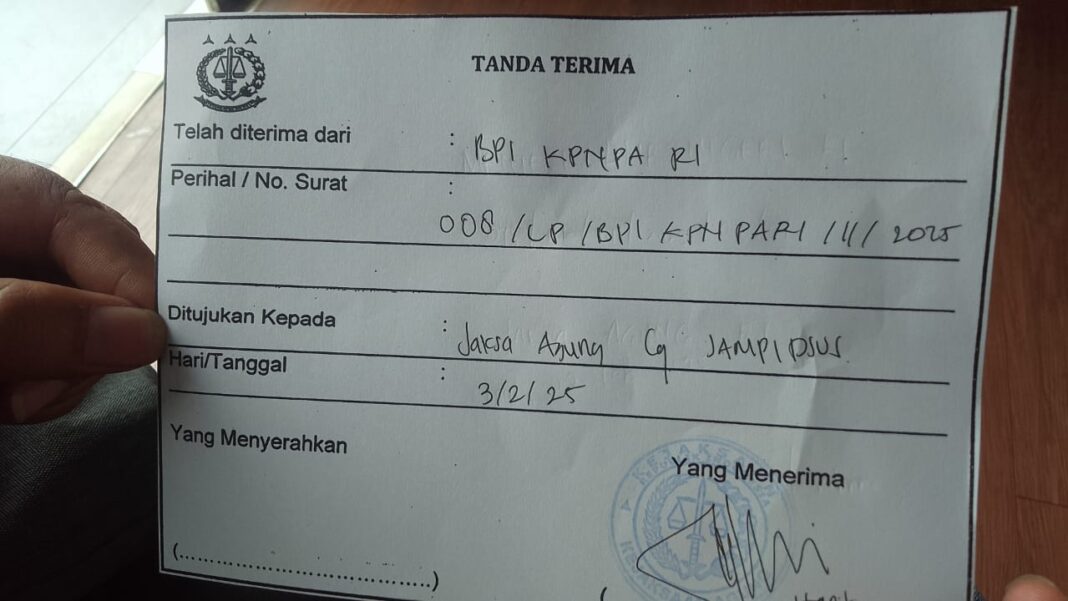 TANDA TERIMA
Telah diterima dari : BPI KPNPA RI
Perihal / No. Surat :
008 /LP /BPI KPN PARI /II/ 2025
Ditujukan Kepada : Jaksa Agung Cq JAMPIDSUS
Hari/Tanggal : 3/2/25
Yang Menyerahkan
Yang Menerima
KEJAKSAAN
(.....................................)
(